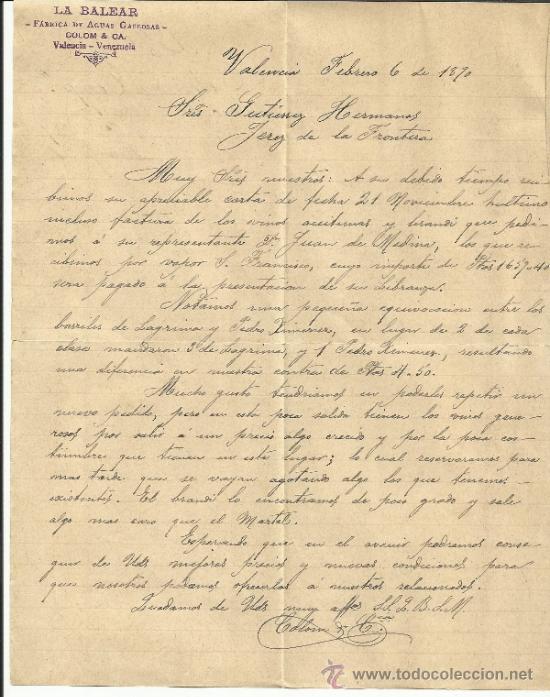 LA BALEAR
- FÁBRICA DE AGUAS GASEOSAS -
COLOM & CA.
Valencia - Venezuela
Valencia Febrero 6 de 1890
Srés Gutierrez Hermanos
Jerez de la Frontera
Muy Srés nuestros: A su debido tiempo reci-
bimos su apreciable carta de fecha 21 Noviembre hultimo
incluso factura de los vinos aceitunas y brandi que pedi-
mos á su representante Dn Juan de Medina, los que re-
cibimos por vapor S. Francisco, cuyo importe de Ptas 1659.40
sera pagado á la presentacion de su Libranza.
Notamos una pequeña equivocacion entre los
barriles de Lagrima y Pedro Ximenez, en lugar de 2 de cada
clase mandaron 3 de Lagrima, y 1 Pedro Ximenez, resultando
una diferencia en nuestra contra de Ptas 4.50.
Mucho gusto tendriamos en poderles repetir un
nuevo pedido, pero en esta poca salida tienen los vinos gene-
rosos por salir á un precio algo crecido y por la poca cos-
tumbre que tienen en este lugar; lo cual reservaramos para
mas tarde que se vayan agotando algo los que tenemos
existentes. El brandi lo encontramos de poco grado y sale
algo mas caro que el Martel.
Esperando que en el avenir podramos conse-
guir de Uds mejores precios y nuevas condiciones para
que nosotros podamos ofrecerlos á nuestros relacionados.
Quedamos de Uds muy affos S.S. Q. B. S. M.
Colom & Cia
www.todocoleccion.net